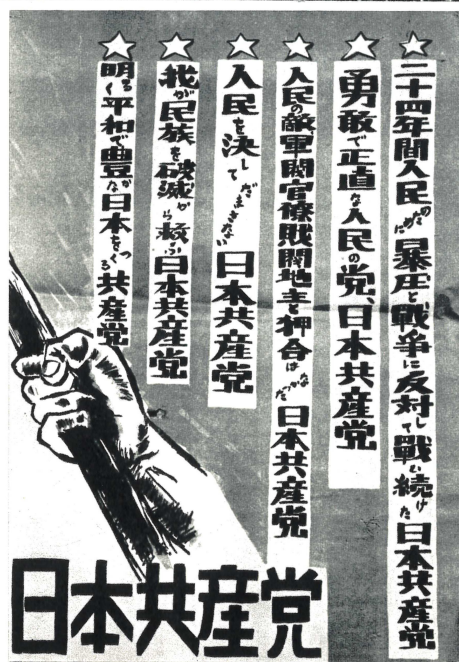 二十四年間人民のために暴圧と戦争に反対して戦い続けた日本共産党
勇敢で正直な人民の党、日本共産党
人民の敵軍閥官僚財閥地主と押合はなかった日本共産党
人民を決してだまさない日本共産党
我が民族を破滅から救ふ日本共産党
明るく平和で豊かな日本をつくる共産党
日本共産党